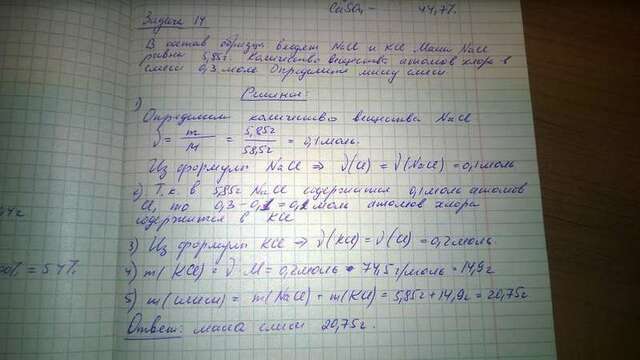 CaSO₄ – 44,7%.
Задача 14
В состав образца входят NaCl и KCl Масса NaCl
равна 5,85г Количество вещества атомов хлора в
смеси 0,3 моль Определите массу смеси
Решение:
1)
Определим количество вещества NaCl
ν = m/M = 5,85г/58,5г = 0,1моль.
Из формулы NaCl ⇒ ν(Cl) = ν(NaCl) = 0,1моль
2) Т.к. в 5,85г NaCl содержится 0,1моль атомов
Cl, то 0,3 – 0,1 = 0,2 моль атомов хлора
содержится в KCl
3) Из формулы KCl ⇒ ν(KCl) = ν(Cl) = 0,2моль.
4) m(KCl) = ν · M = 0,2моль · 74,5г/моль = 14,9г
5) m(смеси) = m(NaCl) + m(KCl) = 5,85г + 14,9г = 20,75г
Ответ: масса смеси 20,75г.
4г
00% = 54%